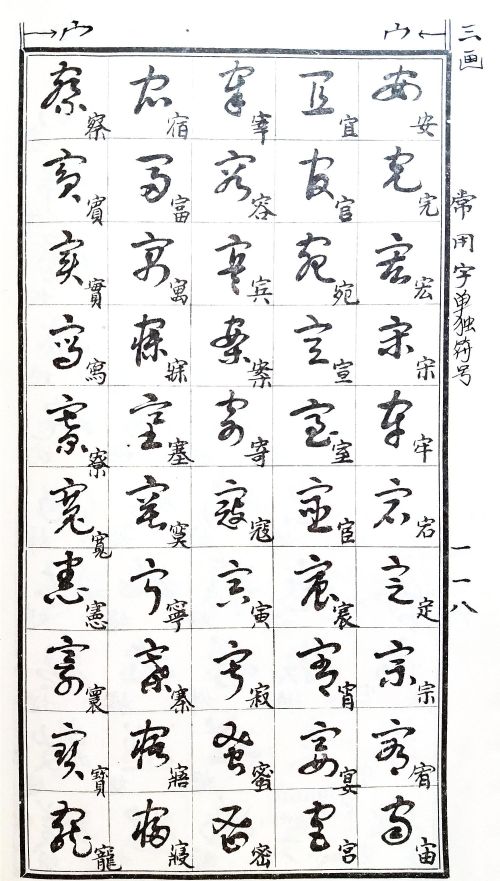 三画
常用字单独符号
一一八
宀
宀
安完宏宋牢宕定宗宥宙
宜官宛宣室宦宸宵宴宫
宰容宾案寄寇寅寂蜜密
宿富寓寐塞寞寧寨寤寢
察賓實寫寮寬憲寰寶寵